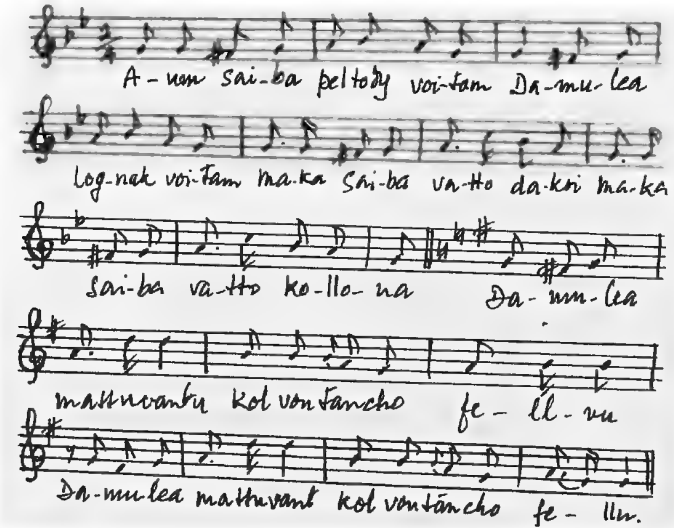 A-uon sai-ba peltody voi-tam Da-mu-lea
log-nak voi-tam ma-ka sai-ba va-tto da-koi ma-ka
sai-ba va-tto ko-llo-na Da-mu-lea
mattuvantu kol vontancho fe-ll-vu
Da-mulea mattuvant kol vontancho fe-llu.